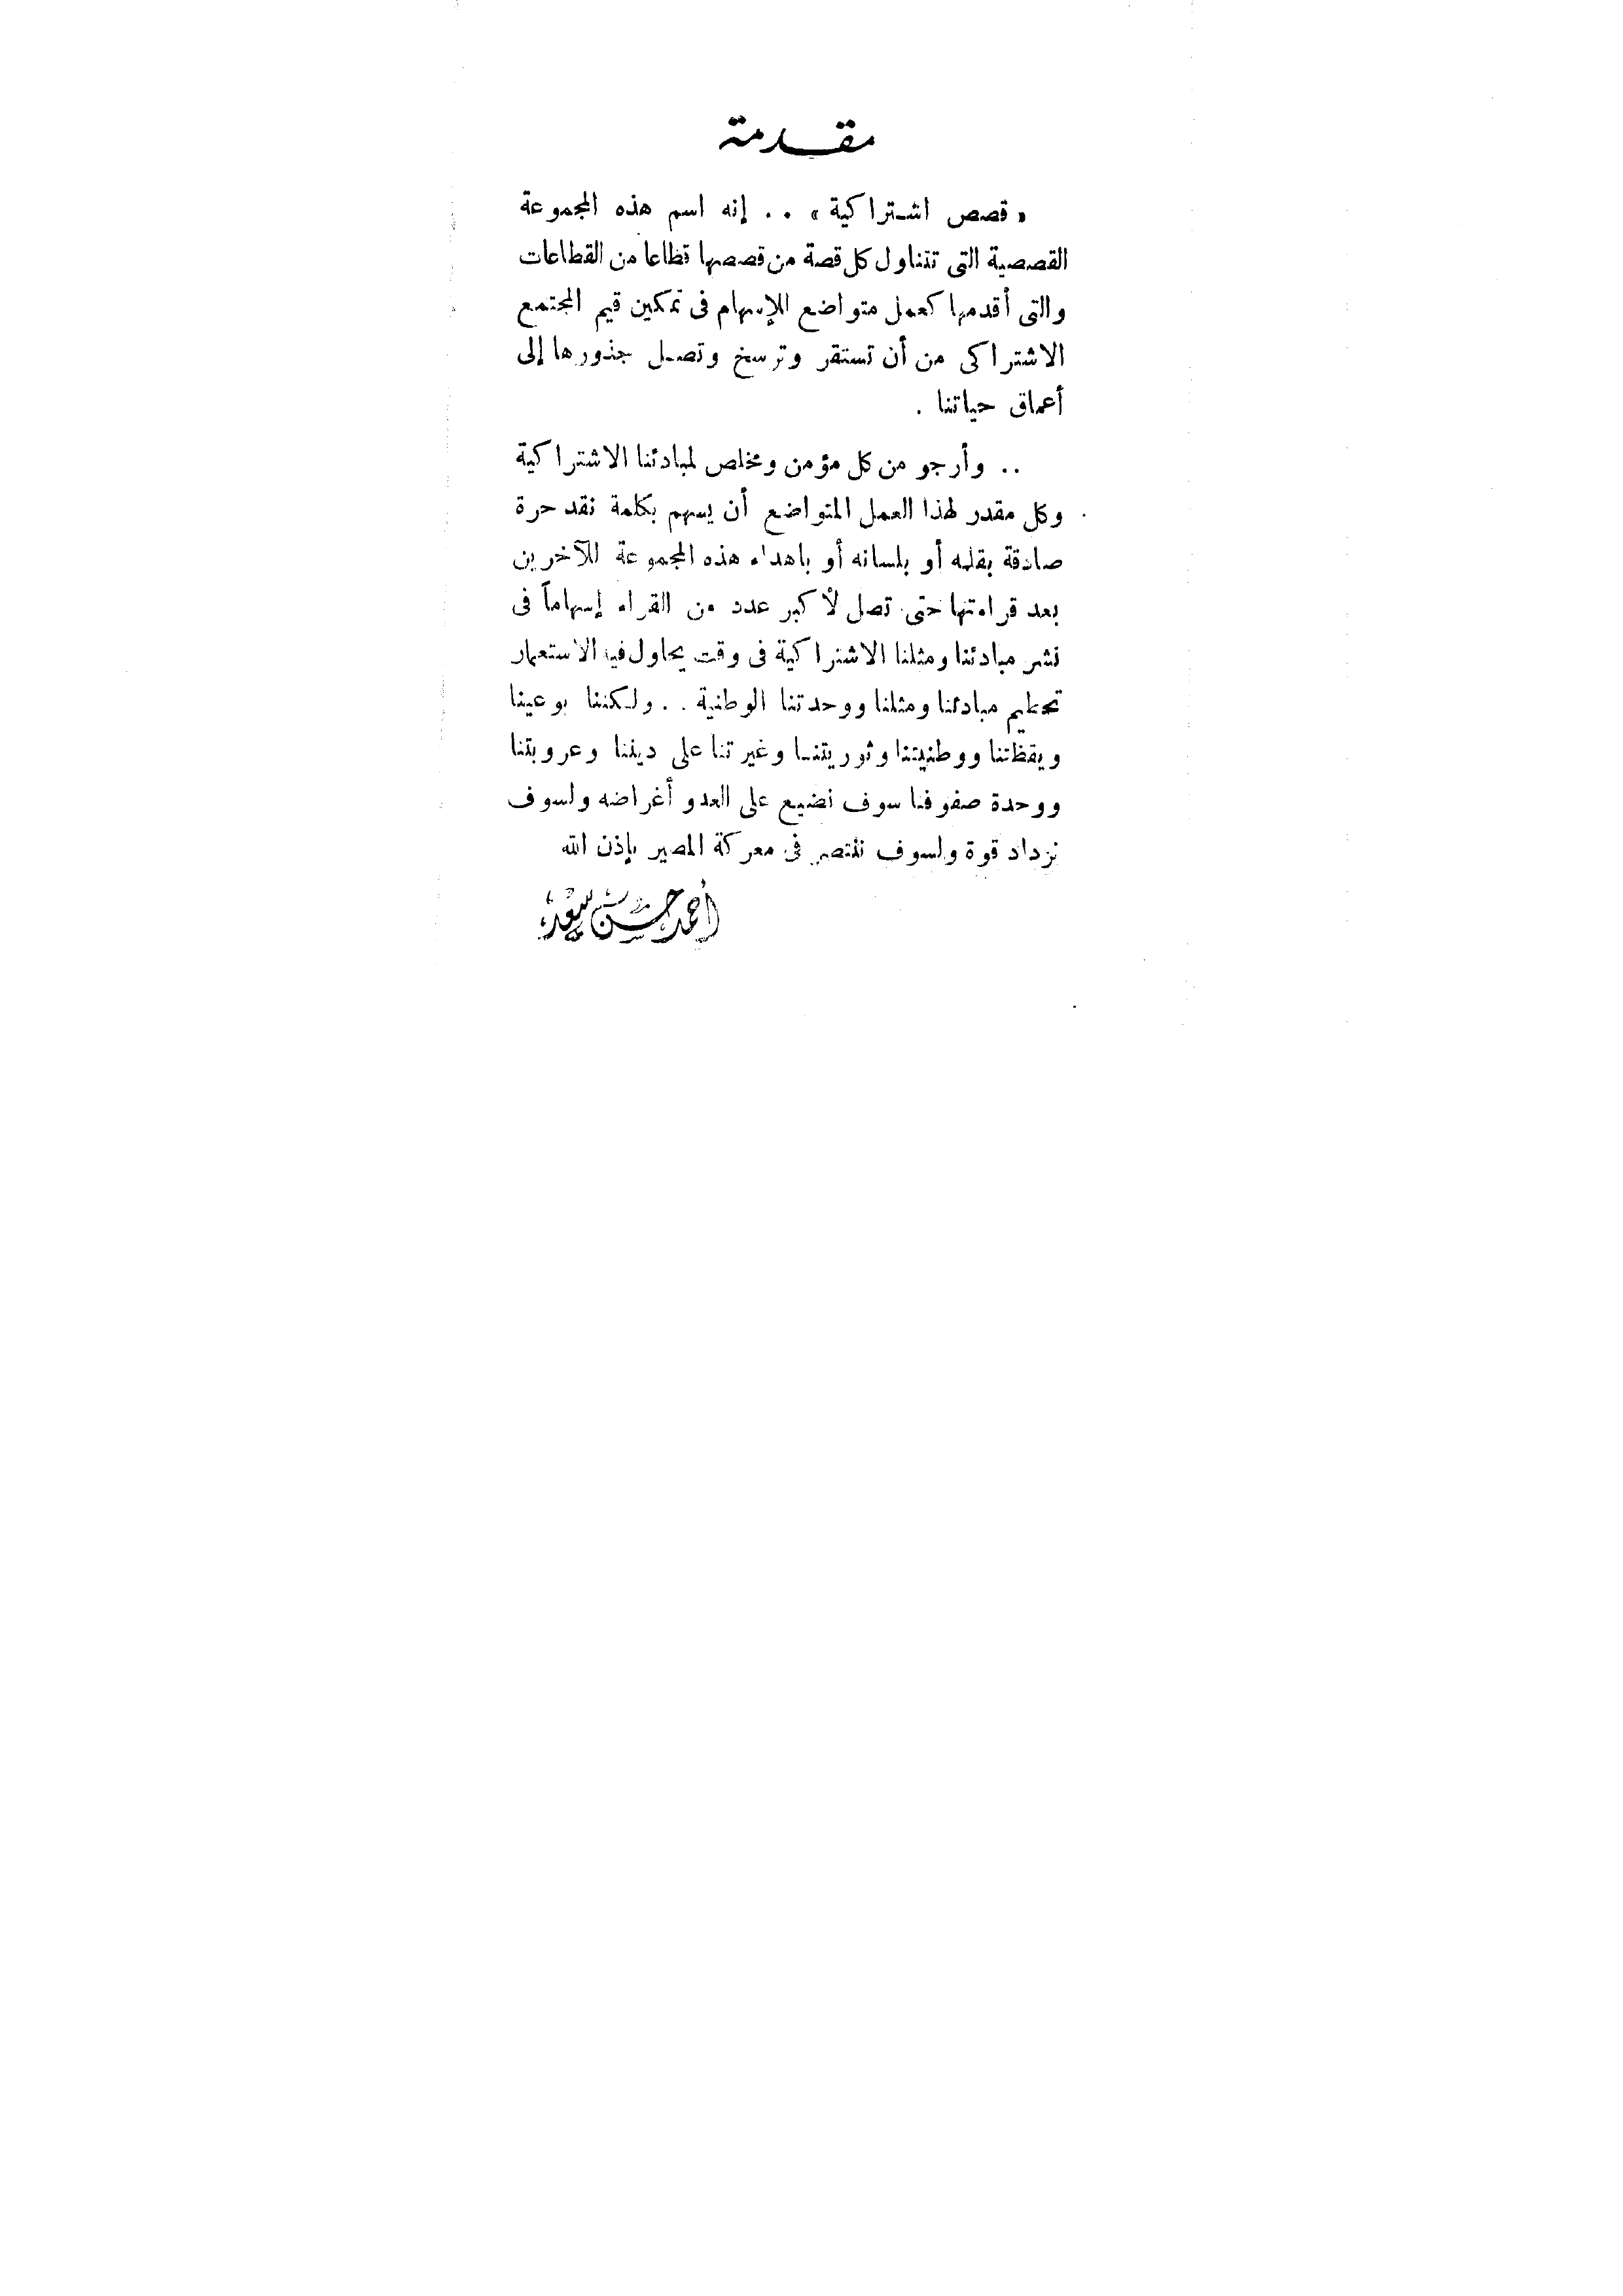 مقدمة
« قصص اشتراكية » . . إنه اسم هذه المجموعة
القصصية التى تتناول كل قصة من قصصها قطاعا من القطاعات
والتى أقدمها كعمل متواضع للإسهام فى تمكين قيم المجتمع
الاشتراكى من أن تستقر وترسخ وتصل جذورها إلى
أعماق حياتنا .
. . وأرجو من كل مؤمن ومخلص لمبادئنا الاشتراكية
وكل مقدر لهذا العمل المتواضع أن يسهم بكلمة نقد حرة
صادقة بقلمه أو بلسانه أو باهداء هذه المجموعة للآخرين
بعد قراءتها حتى تصل لأكبر عدد من القراء إسهاماً فى
نشر مبادئنا ومثلنا الاشتراكية فى وقت يحاول فيه الاستعمار
تحطيم مبادئنا ومثلنا ووحدتنا الوطنية . . ولكننا بوعينا
ويقظتنا ووطنيتنا وثوريتنا وغيرتنا على ديننا وعروبتنا
ووحدة صفوفنا سوف نضيع على العدو أغراضه ولسوف
نزداد قوة ولسوف ننتصر فى معركة المصير بإذن الله
أحمد حسن سعد